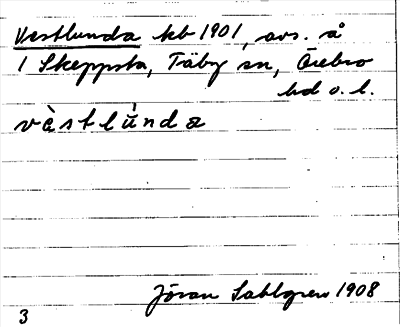 Vestlunda kb 1901, avs. å
1 Skeppsta, Täby sn, Örebro
hd o. l.
vè̀stlùnda
Jöran Sahlgren 1908
3